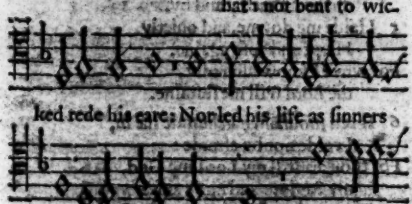 that is not bent to wic-
ked rede his eare: Nor led his life as sinners